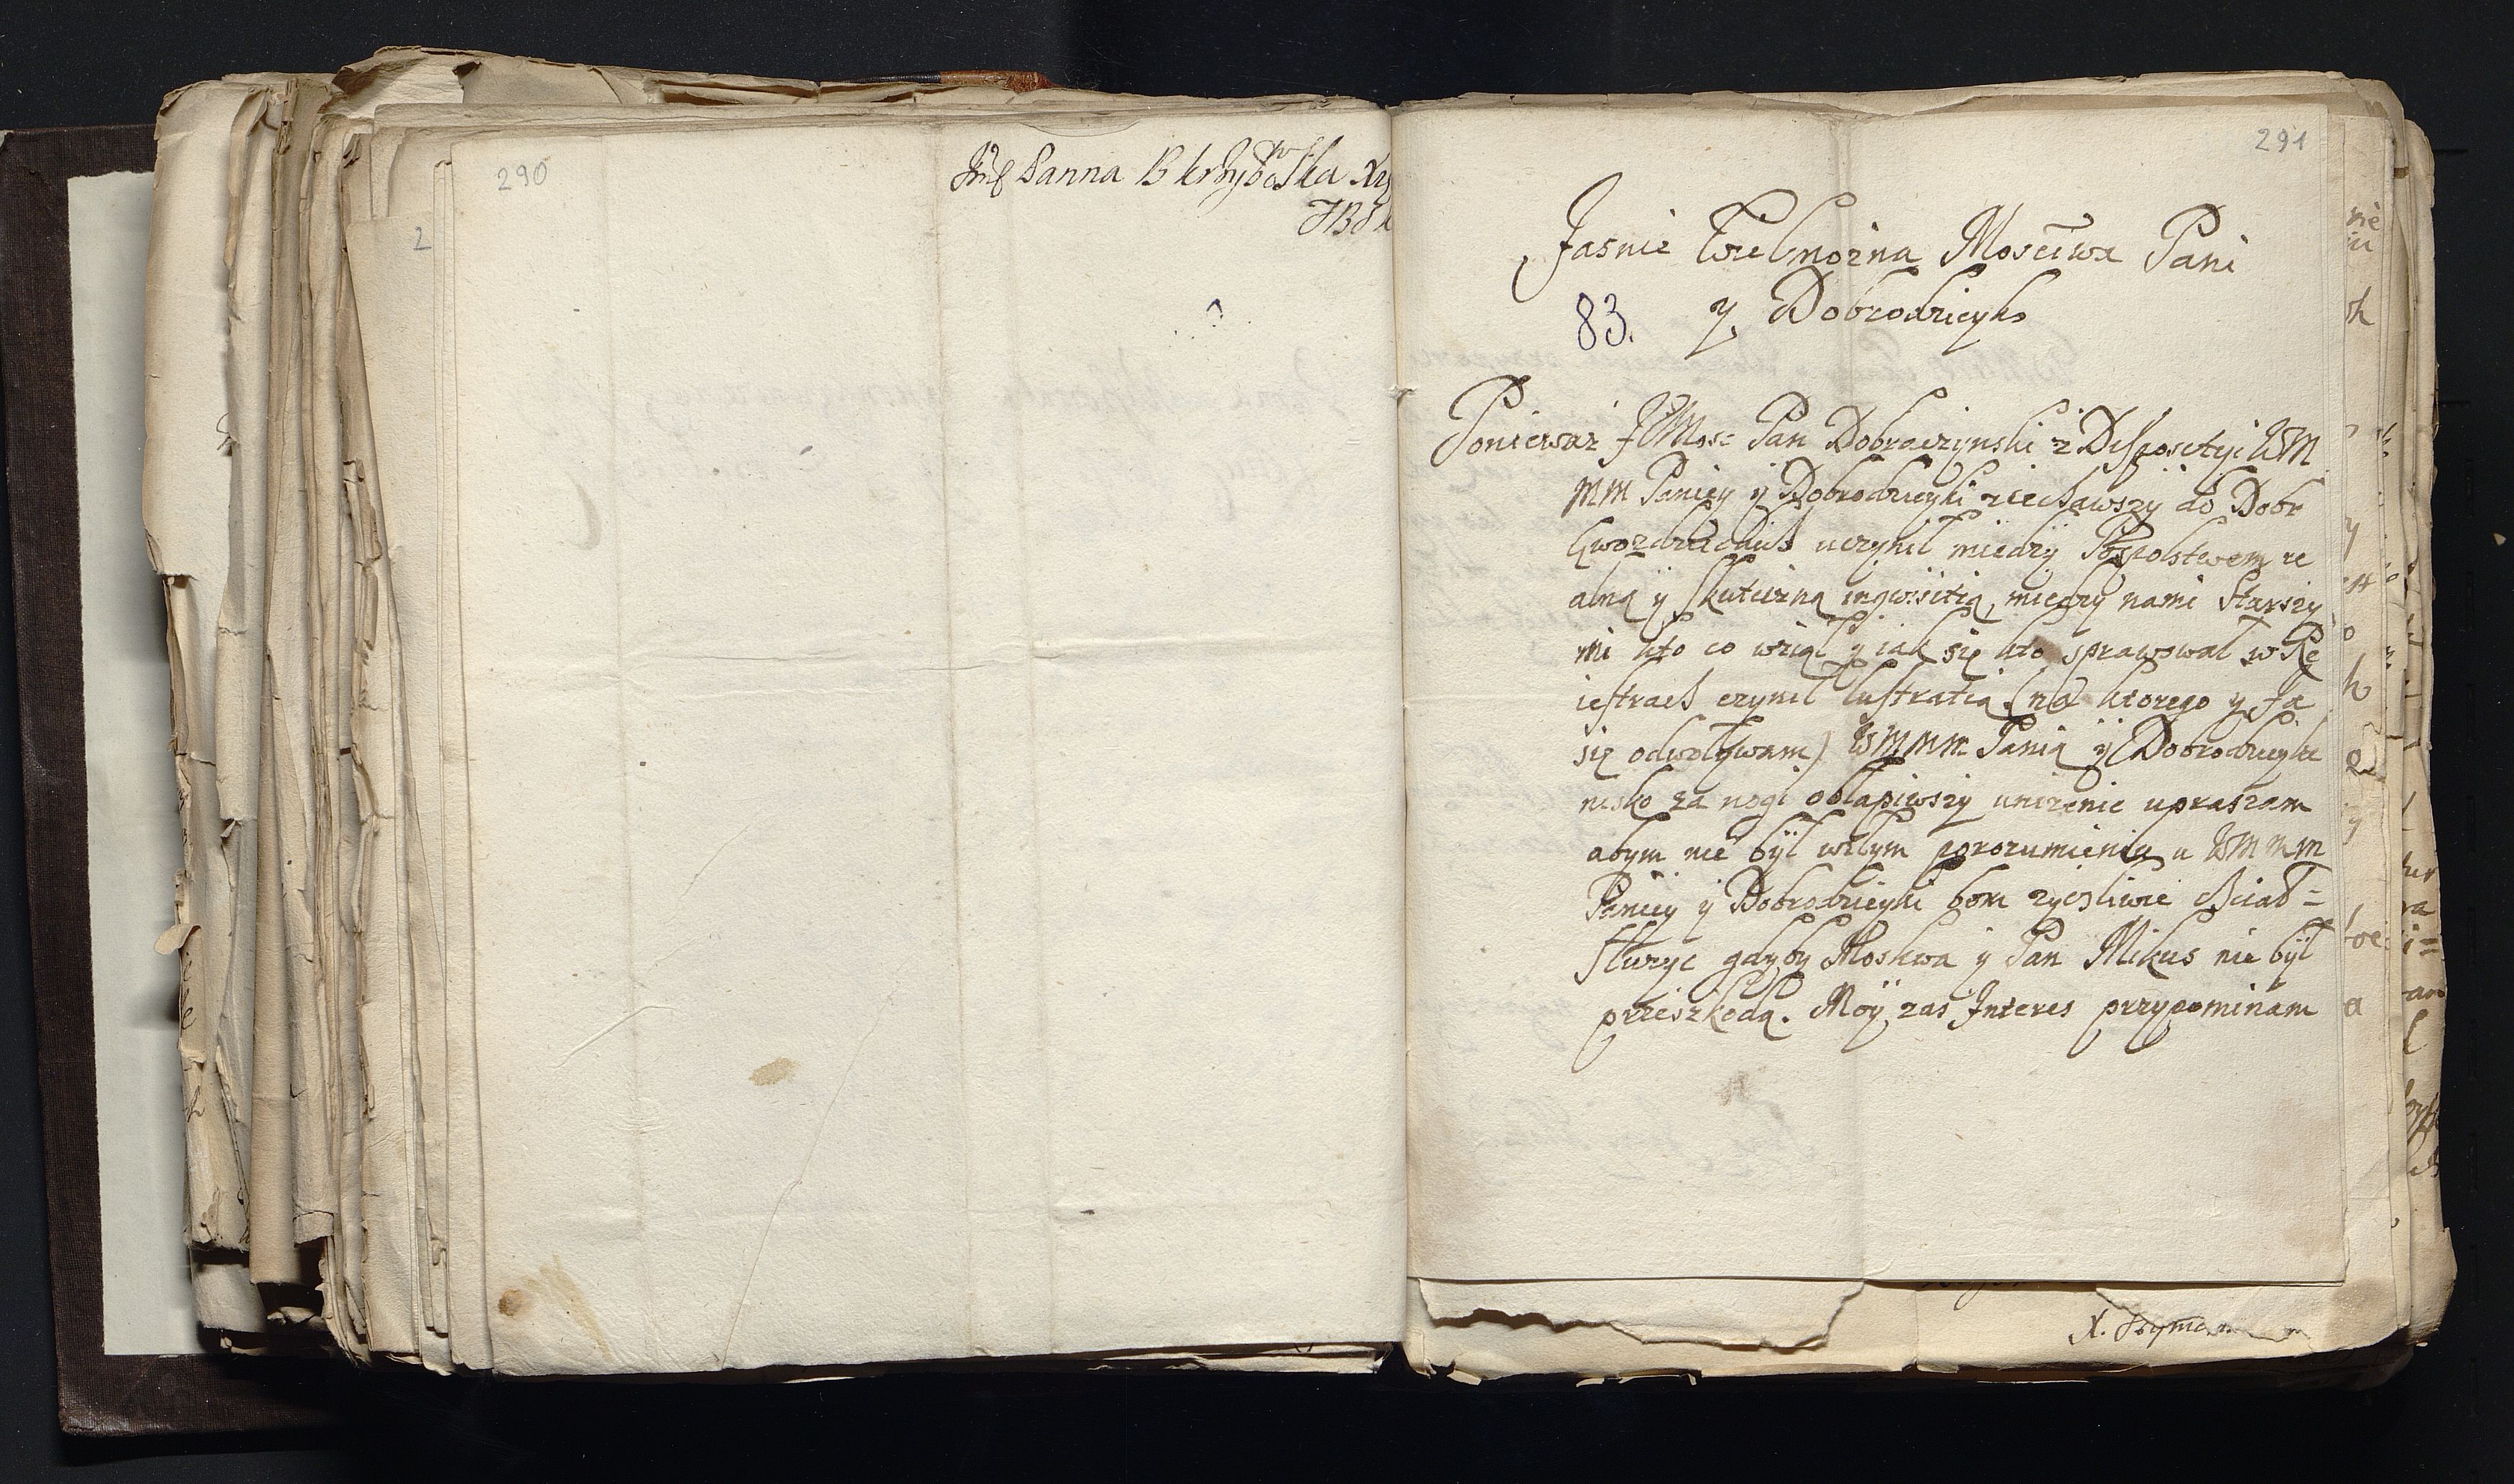 290
Panna
291
Jasnie Wielmozna Mosciwa Pani
83. y Dobrodzieyko
Poniewaz JMosc Pan Dobraczynski z Disposityi WM
MM Paniey y Dobrodzieyki ziechawszy do Dobr
Gwozdzieckich uczynił miedzy Pospolstwem re
alną y skuteczną inqvisitią, miedzy nami Starszy
mi kto co wziął y iak się kto sprawował w Re
iestrach czynił lustratią (na ktorego y Ja
się odwoływam) WMMM Panią y Dobrodzieyke
nisko za nogi obłapiwszy unizenie upraszam
abym nie był w złym porozumieniu u WMMM
Paniey y Dobrodzieyki bom zyczliwie chciał =
słuzyc gdyby Moskwa y Pan Mikus nie był
przeszkodą. Moy zas Interes przypominam